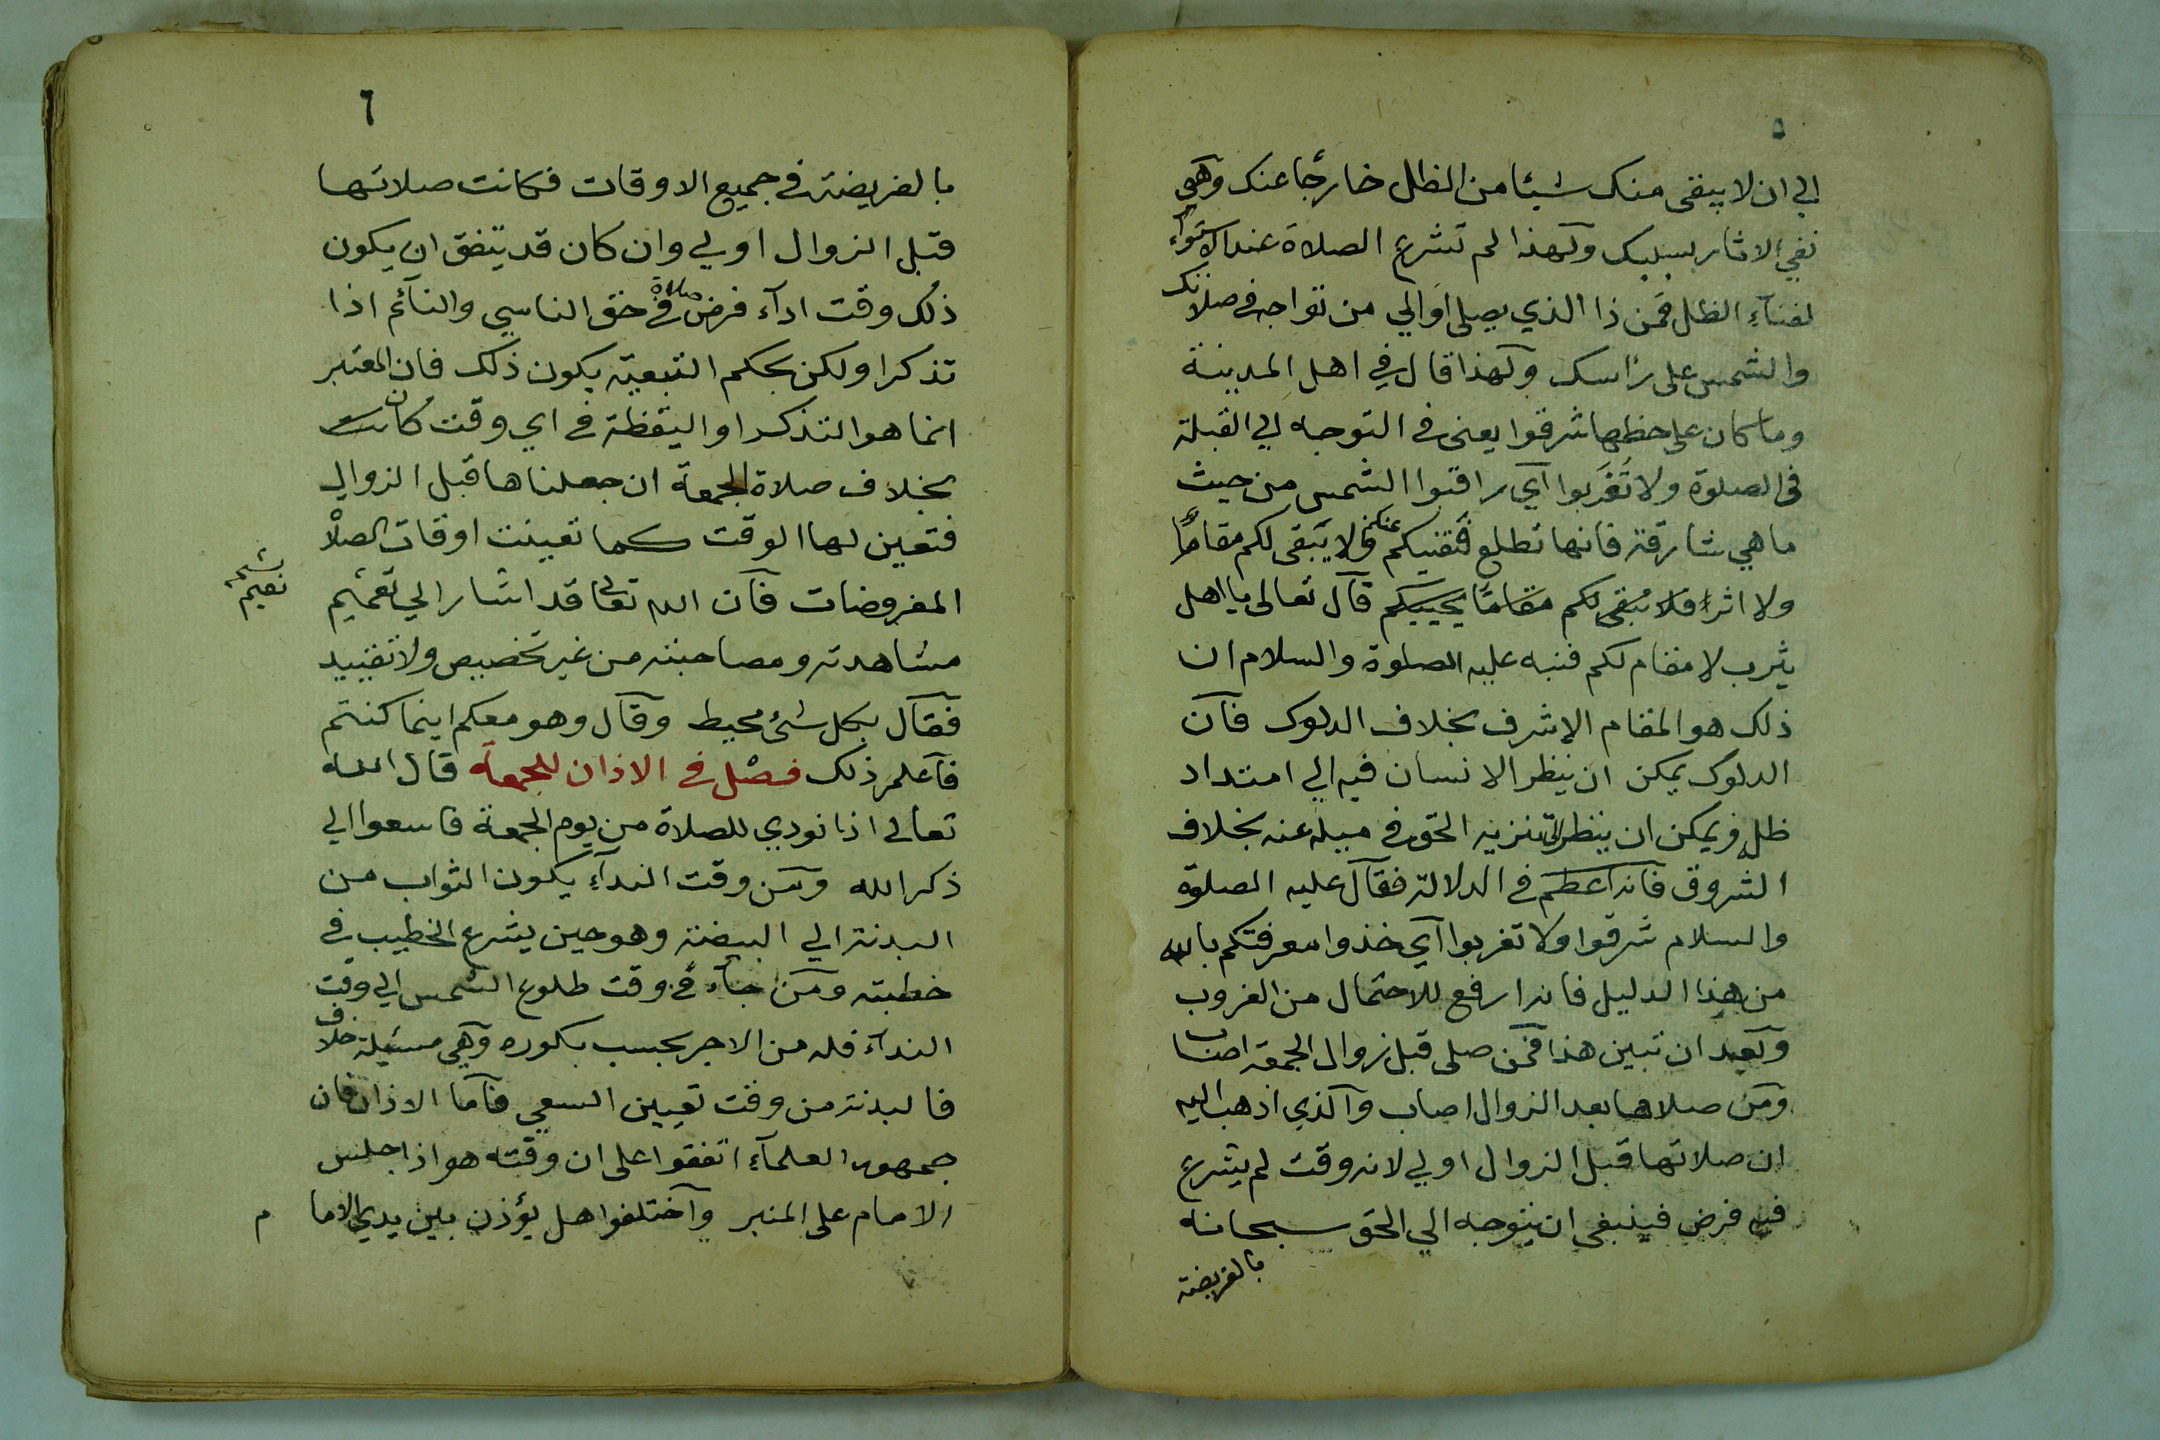 ٥
الي ان لا يبقى منك شيئا من الظل خارجًا عنك وهي
نفي الاثار بسببك ولهذا لم تشرع الصلاة عند الاستواء
لفناء الظل فمن ذا الذي يصلي او الي من تواجه في صلاتك
والشمس على راسك ولهذا قال في اهل المدينة
وما كان على خطها شرقوا يعني في التوجه الي القبلة
في الصلوة ولا تغربوا اي راقبوا الشمس من حيث
ما هي شارقة فانها تطلع فتفنيكم عنكم فلا يبقى لكم مقامًا
ولا اثرا فلا يبقى لكم مقامًا قال تعالى يا اهل
يثرب لا مقام لكم فنبه عليه الصلوة والسلام ان
ذلك هو المقام الاشرف بخلاف الدلوك فان
الدلوك يمكن ان ينظر الانسان فيه الي امتداد
ظله ويمكن ان ينظر تنزيه الحق في ميله عنه بخلاف
الشروق فانه اعظم في الدلالة فقال عليه الصلوة
والسلام شرقوا ولا تغربوا اي خذوا معرفتكم بالله
من هذا الدليل فانه ارفع للاحتمال من الغروب
وبعد ان تبين هذا فمن صلى قبل زوال الجمعة اصاب
ومن صلاها بعد الزوال اصاب والذي اذهب اليه
ان صلاتها قبل الزوال اولي لانه وقت لم يشرع
فيه فرض فينبغي ان يتوجه الي الحق سبحانه
بالفريضة
٦
بالفريضة في جميع الاوقات فكانت صلاتها
قبل الزوال اولي وان كان قد يتفق ان يكون
ذلك وقت اداء فرض صلاة في حق الناسي والنائم اذا
تذكرا ولكن بحكم التبعية يكون ذلك فان المعتبر
انما هو التذكر او اليقظة في اي وقت كان
بخلاف صلاة الجمعة ان جعلناها قبل الزوال
فتعين لها الوقت كما تعينت اوقات الصلاة
المفروضات فان الله تعالى قد اشار الي تعميم
نعيم
مشاهدته ومصاحبته من غير تخصيص ولا تقييد
فقال بكل شئ محيط وقال وهو معكم اينما كنتم
فاعلم ذلك فصل في الاذان للجمعة قال الله
تعالى اذا نودي للصلاة من يوم الجمعة فاسعوا الي
ذكر الله ومن وقت النداء يكون الثواب من
البدنة الي البيضة وهو حين يشرع الخطيب في
خطبته ومن جاء في وقت طلوع الشمس الي وقت
النداء فله من الاجر بحسب بكوره وهي مسئلة خلاف
فالبدنة من وقت تعيين السعي فاما الاذان فان
جمهور العلماء اتفقوا على ان وقته هو اذا جلس
الامام على المنبر واختلفوا هل يؤذن بين يدي الاما م